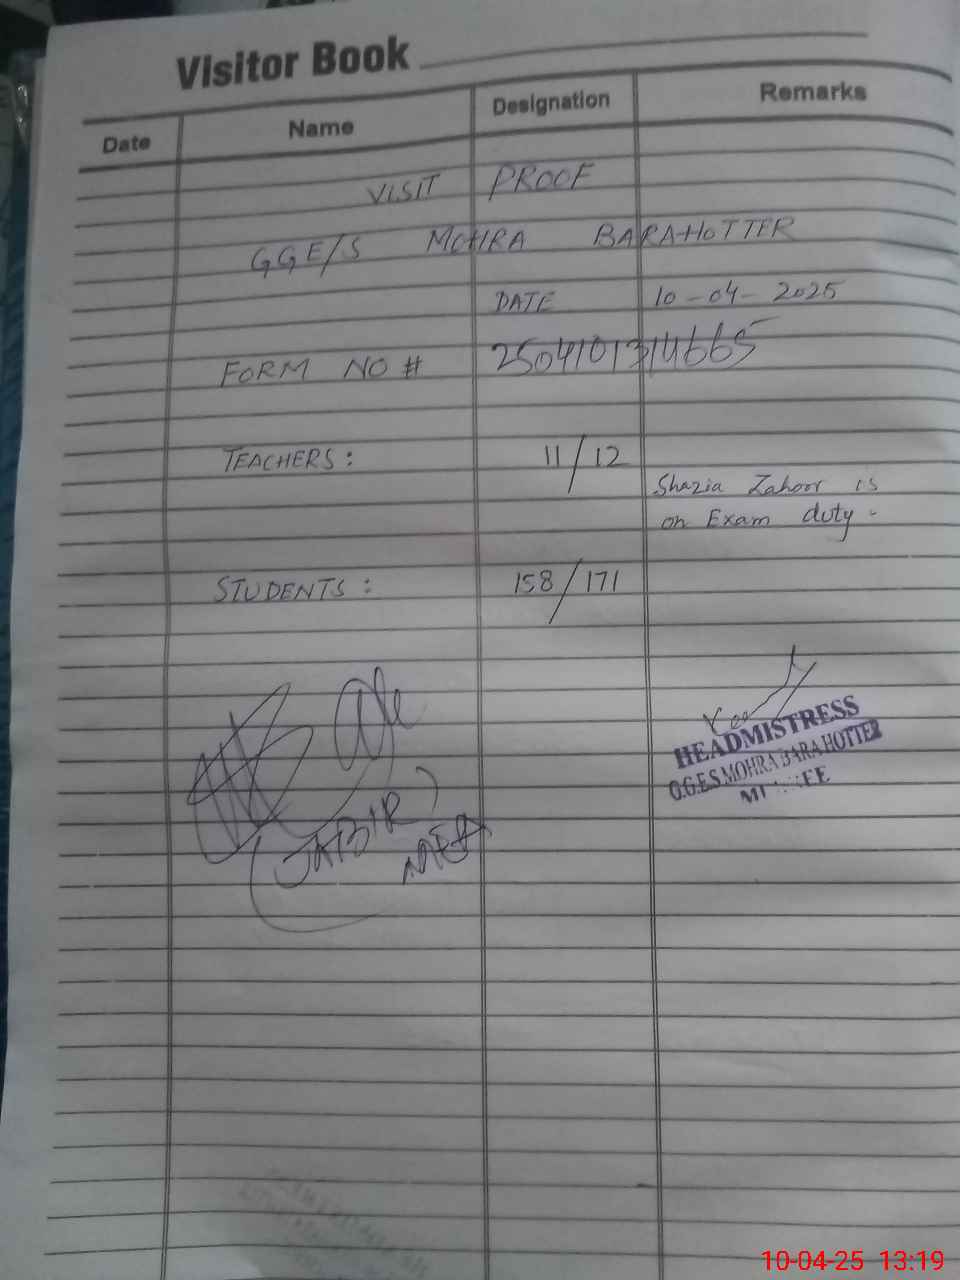 Visitor Book
Date Name Designation Remarks
VISIT PROOF
GGE/S MOHRA BARAHOTTER
DATE 10-04-2025
FORM NO # 2504101314665
TEACHERS: 11/12
Shazia Zahoor is
on Exam duty.
STUDENTS: 158/171
HEADMISTRESS
G.G.E.S MOHRA BARA HOTTER
(JABIR)
MEA
10-04-25 13:19